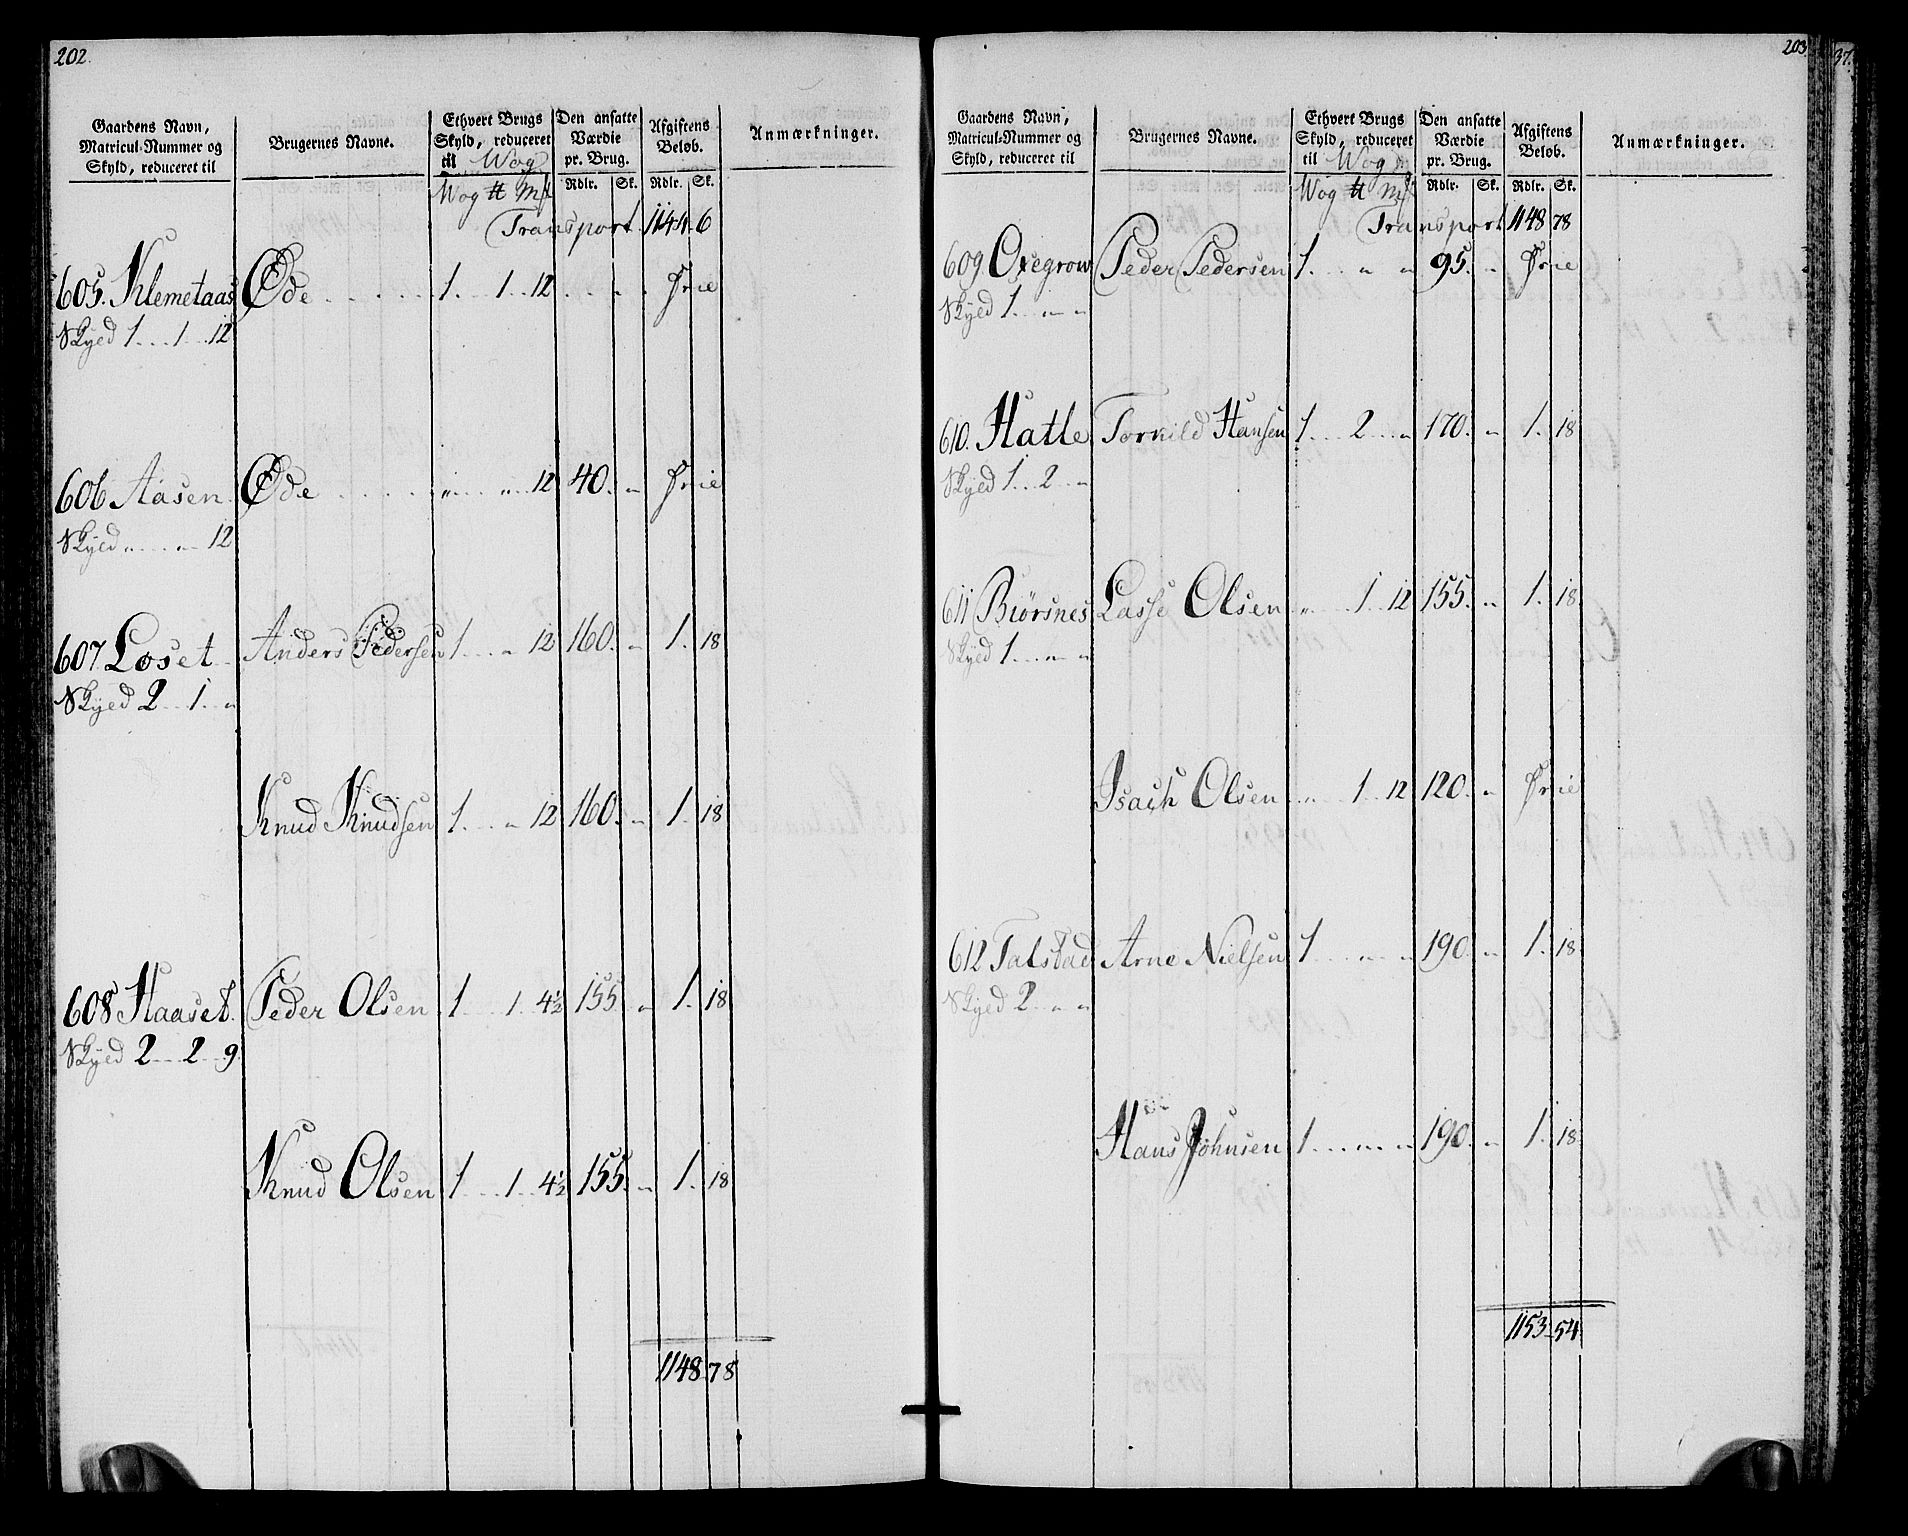 202.
Gaardens Navn,
Matricul-Nummer og
Skyld, reduceret til
Brugernes Navne.
Ethvert Brugs
Skyld, reduceret
til Wog
Wog ℔ Mk
Den ansatte
Værdie
pr. Brug.
Rdlr. Sk.
Afgiftens
Beløb.
Rdlr. Sk.
Anmærkninger.
Transport 1144 6
605. Klemetaas Øde 1 1 12 " " Frie
Skyld 1 1 12
606 Aasen Øde " " 12 40. " Frie
Skyld " " 12
607 Loset Anders Pedersen 1 " 12 160. " 1. 18
Skyld 2 1 "
Knud Knudsen 1 " 12 160. " 1. 18
608 Haaset. Peder Olsen 1 1 4½ 155 " 1. 18
Skyld 2 2 9
Knud Olsen 1 1 4½ 155. " 1. 18
1148 78
203
Gaardens Navn,
Matricul-Nummer og
Skyld, reduceret til
Brugernes Navne.
Ethvert Brugs
Skyld, reduceret
til Wog
Wog ℔ Mk
Den ansatte
Værdie
pr. Brug.
Rdlr. Sk.
Afgiftens
Beløb.
Rdlr. Sk.
Anmærkninger.
Transport 1148 78
609 Peder Pedersen 1 " " 95. " Frie
Skyld 1 " "
610. Hatle Torkild Hansen 1 2 " 170. " 1. 18
Skyld 1 2 "
611 Biörsnes Lasse Olsen " 1 12 155. " 1. 18
Skyld 1 " "
Isach Olsen " 1 12 120. " Frie
612 Talstad Arne Nielsen 1 " " 190. " 1. 18
Skyld 2 " "
Hans Johnsen 1 " " 190. " 1. 18
1153 54
37.